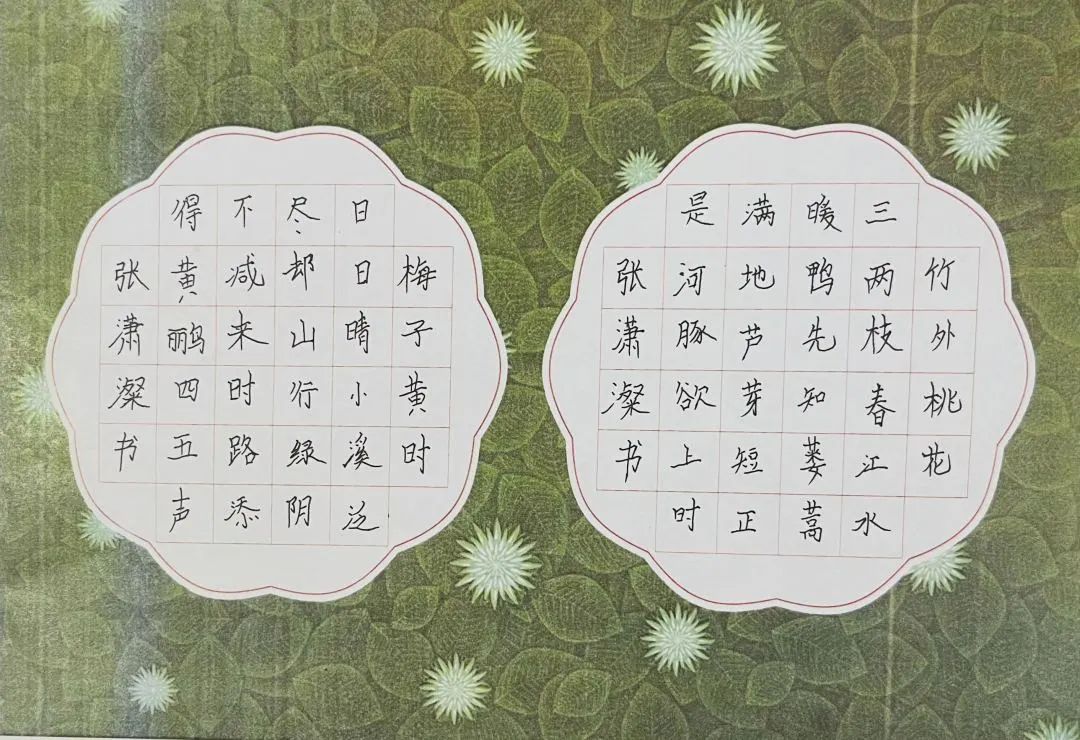 竹外桃花
三两枝春江水
暖鸭先知蒌蒿
满地芦芽短正
是河豚欲上时
张潇澯书
梅子黄时
日日晴小溪泛
尽却山行绿阴
不减来时路添
得黄鹂四五声
张潇澯书